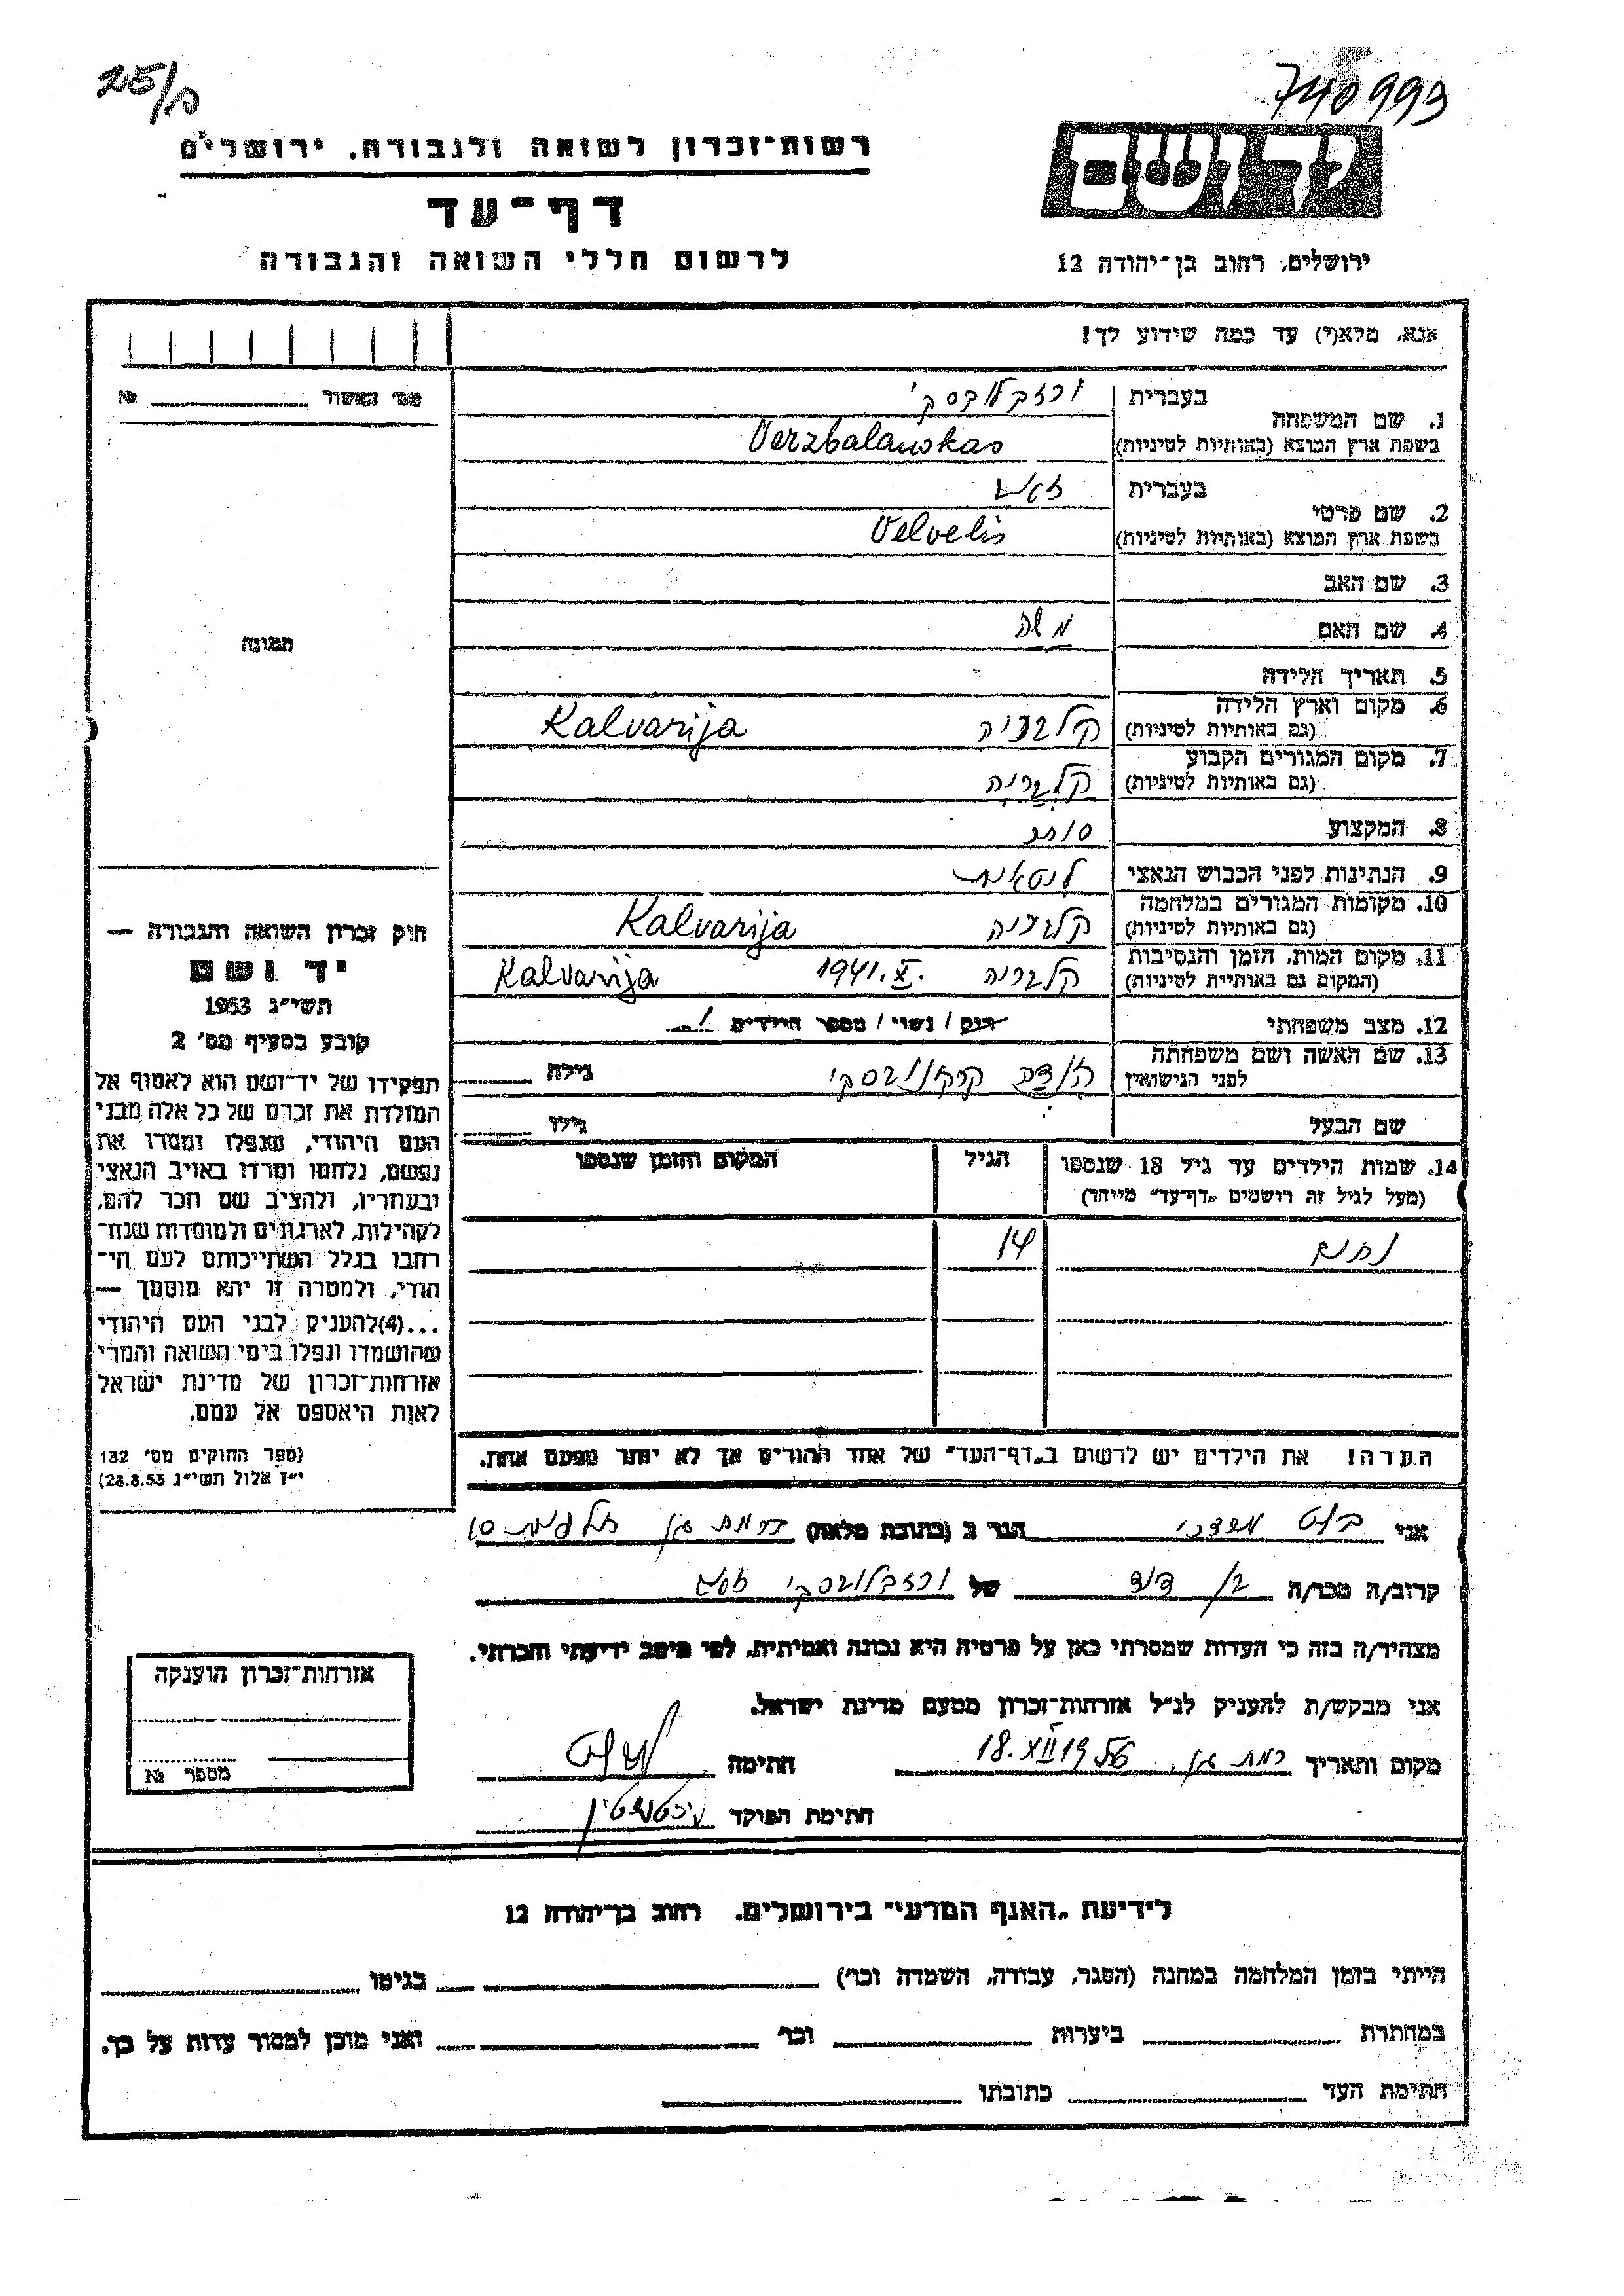 25/ח
740993
רשות־זכרון לשואה ולגבורה, ירושלים
דף־עד
לרשום חללי השואה והגבורה
יד ושם
ירושלים, רחוב בן־יהודה 12
אנא, מלא(י) עד כמה שידוע לך!
מס' האשור № 
תמונה
1. שם המשפחה
בעברית
בשפת ארץ המוצא (באותיות לטיניות) Verzbalauskas
2. שם פרטי
בעברית זאב
בשפת ארץ המוצא (באותיות לטיניות) Velvelis
3. שם האב
4. שם האם משה
5. תאריך הלידה
6. מקום וארץ הלידה
(גם באותיות לטיניות) קלבריה Kalvarija
7. מקום המגורים הקבוע
(גם באותיות לטיניות) קלבריה
8. המקצוע סוחר
9. הנתינות לפני הכבוש הנאצי ליטאית
10. מקומות המגורים במלחמה
(גם באותיות לטיניות) קלבריה Kalvarija
11. מקום המות, הזמן והנסיבות
(המקום גם באותיית לטיניות) קלבריה 1941.X. Kalvarija
12. מצב משפחתי רוק / נשוי / מספר הילדים 1
13. שם האשה ושם משפחתה
לפני הנישואין גילה
שם הבעל גילו
14. שמות הילדים עד גיל 18 שנספו
(מעל לגיל זה רושמים „דף־עד" מייחד)
הגיל
המקום והזמן שנספו
נחום 14
הערה! את הילדים יש לרשום ב„דף־העד" של אחד ההורים אך לא יותר מפעם אחת.
חוק זכרון השואה והגבורה —
יד ושם
תשי"ג 1953
קובע בסעיף מס' 2
תפקידו של יד־ושם הוא לאסוף אל
המולדת את זכרם של כל אלה מבני
העם היהודי, שנפלו ומסרו את
נפשם, נלחמו ומרדו באויב הנאצי
ובעוזריו, ולהציב שם וזכר להם,
לקהילות, לארגונים ולמוסדות שנח־
רבו בגלל השתייכותם לעם הי־
הודי, ולמטרה זו יהא מוסמך —
...(4) להעניק לבני העם היהודי
שהושמדו ונפלו בימי השואה והמרי
אזרחות־זכרון של מדינת ישראל
לאות היאספם אל עמם.
(ספר החוקים מס' 132
י"ז אלול תשי"ג 28.8.53)
אני הגר ב (כתובת מלאה) רמת גן 10
קרוב/ה מכר/ה בן דוד של
מצהיר/ה בזה כי העדות שמסרתי כאן על פרטיה היא נכונה ואמיתית, לפי מיטב ידיעתי והכרתי.
אני מבקש/ת להעניק לנ"ל אזרחות־זכרון מטעם מדינת ישראל.
מקום ותאריך רמת גן, 18.XII 1956 חתימה
חתימת הפוקד
אזרחות־זכרון הוענקה
מספר №
לידיעת „האגף המדעי" בירושלים, רחוב בן־יהודה 12
הייתי בזמן המלחמה במחנה (הסגר, עבודה, השמדה וכר') בגיטו
במחתרת ביערות וכר' ואני מוכן למסור עדות על כך.
חתימת העד כתובתו